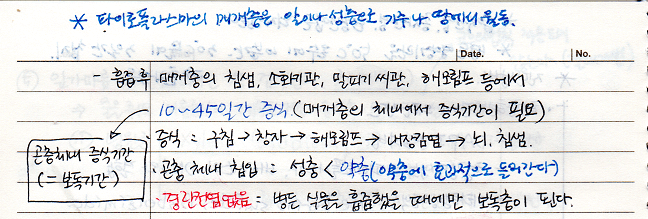 * 파이토플라스마의 매개충은 알이나 성충으로 기주나 땅에서 월동.
Date. No.
- 흡즙 후 매개충의 침샘, 소화기관, 말피기씨관, 해모림프 등에서
10~45일간 증식 (매개충의 체내에서 증식기간이 필요)
· 증식 = 구침 → 창자 → 해모림프 → 내장감염 → 뇌, 침샘.
곤충체내 증식기간
(= 보독기간)
· 곤충 체내 침입 = 성충 < 약충 (약충에 효과적으로 들어간다)
· 경란전염없음 = 병든 식물을 흡즙했을 때에만 보독충이 된다.